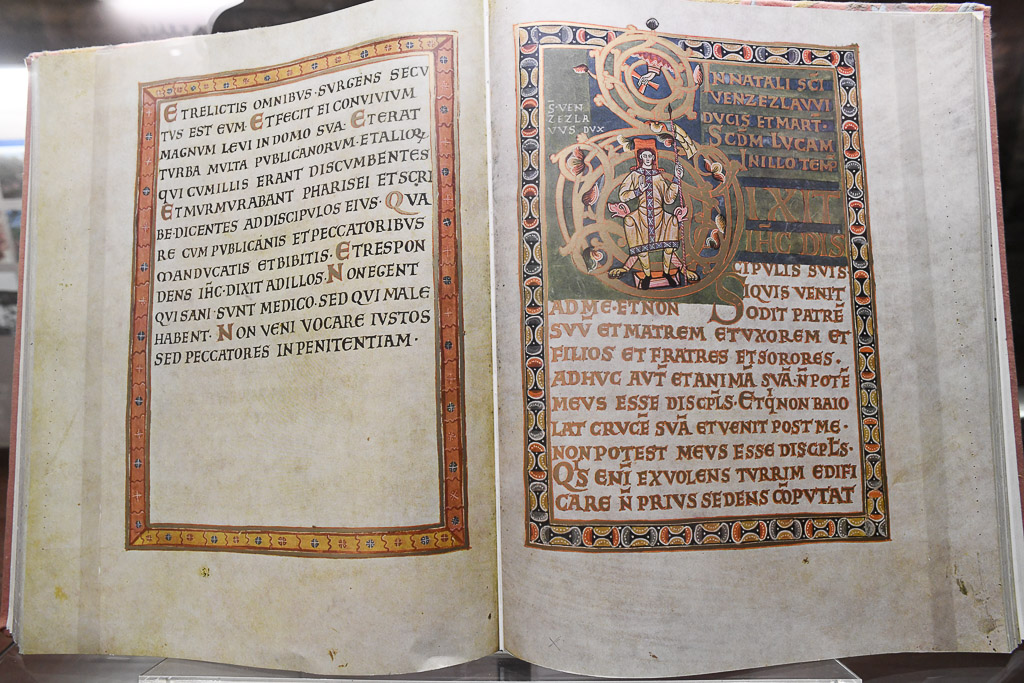 ET RELICTIS OMNIBUS · SVRGENS SECV
TVS EST EVM · ET FECIT EI CONVIVIVM
MAGNVM LEVI IN DOMO SVA · ET ERAT
TVRBA MVLTA PVBLICANORVM · ET ALIOꝜ
QVI CVM ILLIS ERANT DISCVMBENTES
ET MVRMVRABANT PHARISEI ET SCRI
BE · DICENTES AD DISCIPVLOS EIVS · QVA
RE CVM PVBLICANIS ET PECCATORIBVS
MANDVCATIS ET BIBITIS · ET RESPON
DENS IH̄C · DIXIT AD ILLOS · NON EGENT
QVI SANI · SVNT MEDICO · SED QVI MALE
HABENT · NON VENI VOCARE IVSTOS
SED PECCATORES IN PENITENTIAM ·
S̄ · VEN
ZEZLA
VVS DVX
IN NATALI SC̄I
VENZEZLAVVI
DVCIS ET MART̄ ·
SC̄DM LVCAM
IN ILLO TEM̄
DIXIT
IH̄C DIS
CIPVLIS SVIS
SI QVIS VENIT
AD ME · ET NON ODIT PATRĒ
SVV̄ ET MATREM ET VXOREM ET
FILIOS ET FRATRES ET SORORES ·
ADHVC AVT̄ ET ANIMĀ SVĀ · N̄ POTĒ
MEVS ESSE DISCP̄LS · ET Q̄I NON BAIO
LAT CRVCĒ SVĀ ET VENIT POST ME ·
NON POTEST MEVS ESSE DISCP̄LS ·
QS ENĪ EX VOLENS TVRRIM EDIFI
CARE N̄ PRIVS SEDENS CŌPVTAT